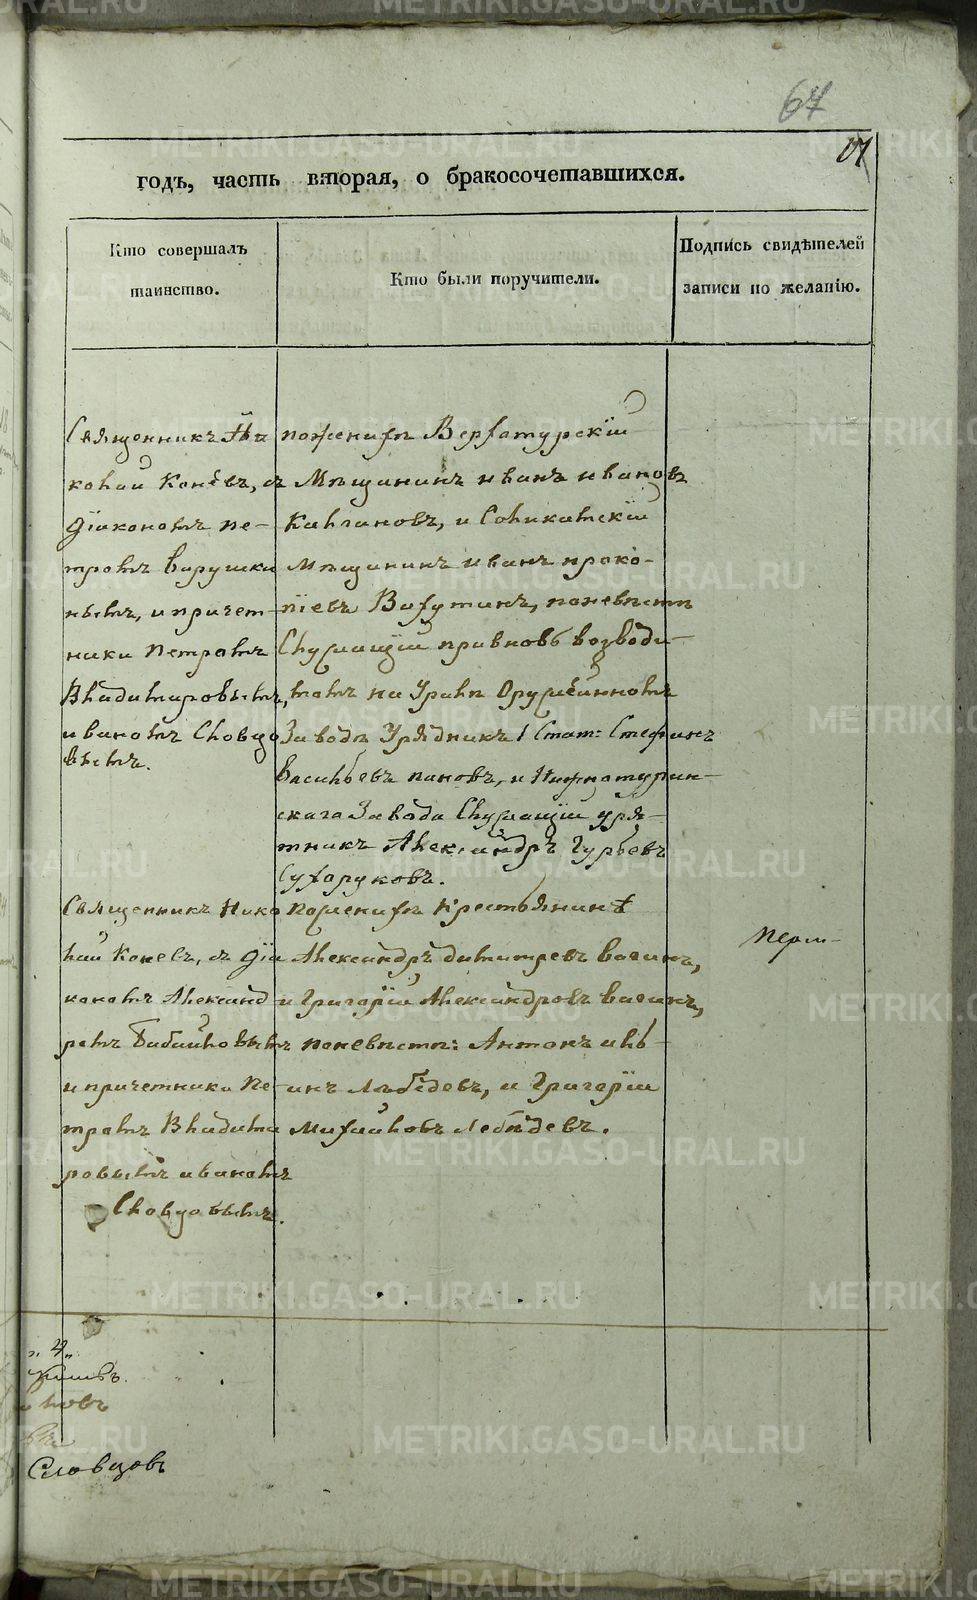 67
годъ, часть вторая, о бракосочетавшихся.
Кто совершалъ
таинство.
Кто были поручители.
Подпись свидѣтелей
записи по желанію.
Священникъ Ни
колай Коневъ, съ
діакономъ Пе-
тромъ
нымъ, и причет-
ники Петромъ
Владимировымъ,
иваномъ Словцо
вымъ.
пожених Верхотурскій
Мѣщанинъ иванъ ивановъ
Каплановъ, и Соликамскій
мѣщанинъ иванъ проко-
піевъ Вахутинъ, поневѣстѣ
Служащій привновь возводи-
момъ на Оружейномъ
Заводѣ Урядникъ 1 Стат: Стефанъ
Васильевъ пановъ, и Нижнотурин-
скаго Завода Служащій уря-
тникъ Александръ Гурьевъ
Сухоруковъ.
Священникъ Нико
лай Коневъ, съ діа
кономъ Александ
ромъ
и причетники Пе-
тромъ Владими
ровымъ иваномъ
Словцовымъ.
пожених крестьянинѣ
Александръ димитревъ вагинъ,
и Григорій Александровъ вагинъ,
поневѣстѣ: Антонъ иль-
инъ Лебѣдевъ, и Григорій
Михайловъ Лебѣдевъ.
„ 4 „
Словцовъ
METRIKI.GASO-URAL.RU